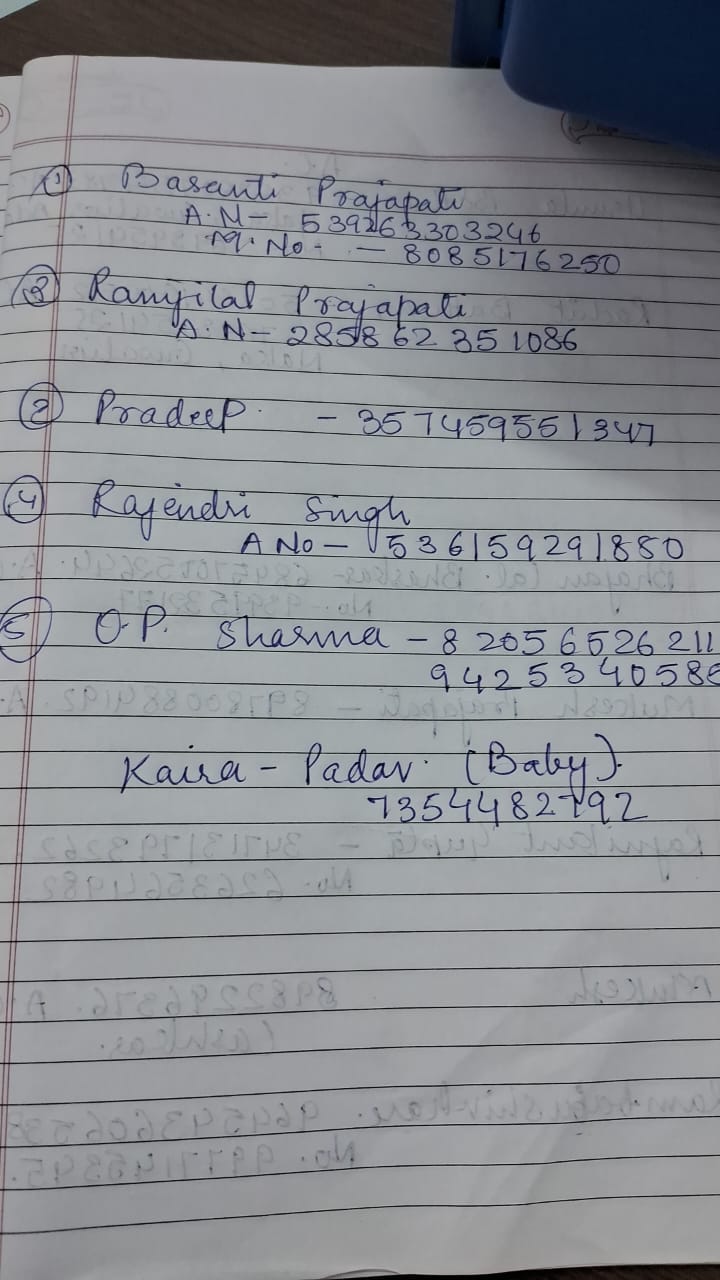 ① Basanti Prajapati
A.N- 539263303246
M.No- - 8085176250
③ Ramjilal Prajapati
A.N- 285862351086
② Pradeep. - 357459551347
④ Rajendri Singh
A No- 536159291880
⑤ O.P. Sharma - 82056526211
942534058
Kaira - Padav. (Baby).
7354482792